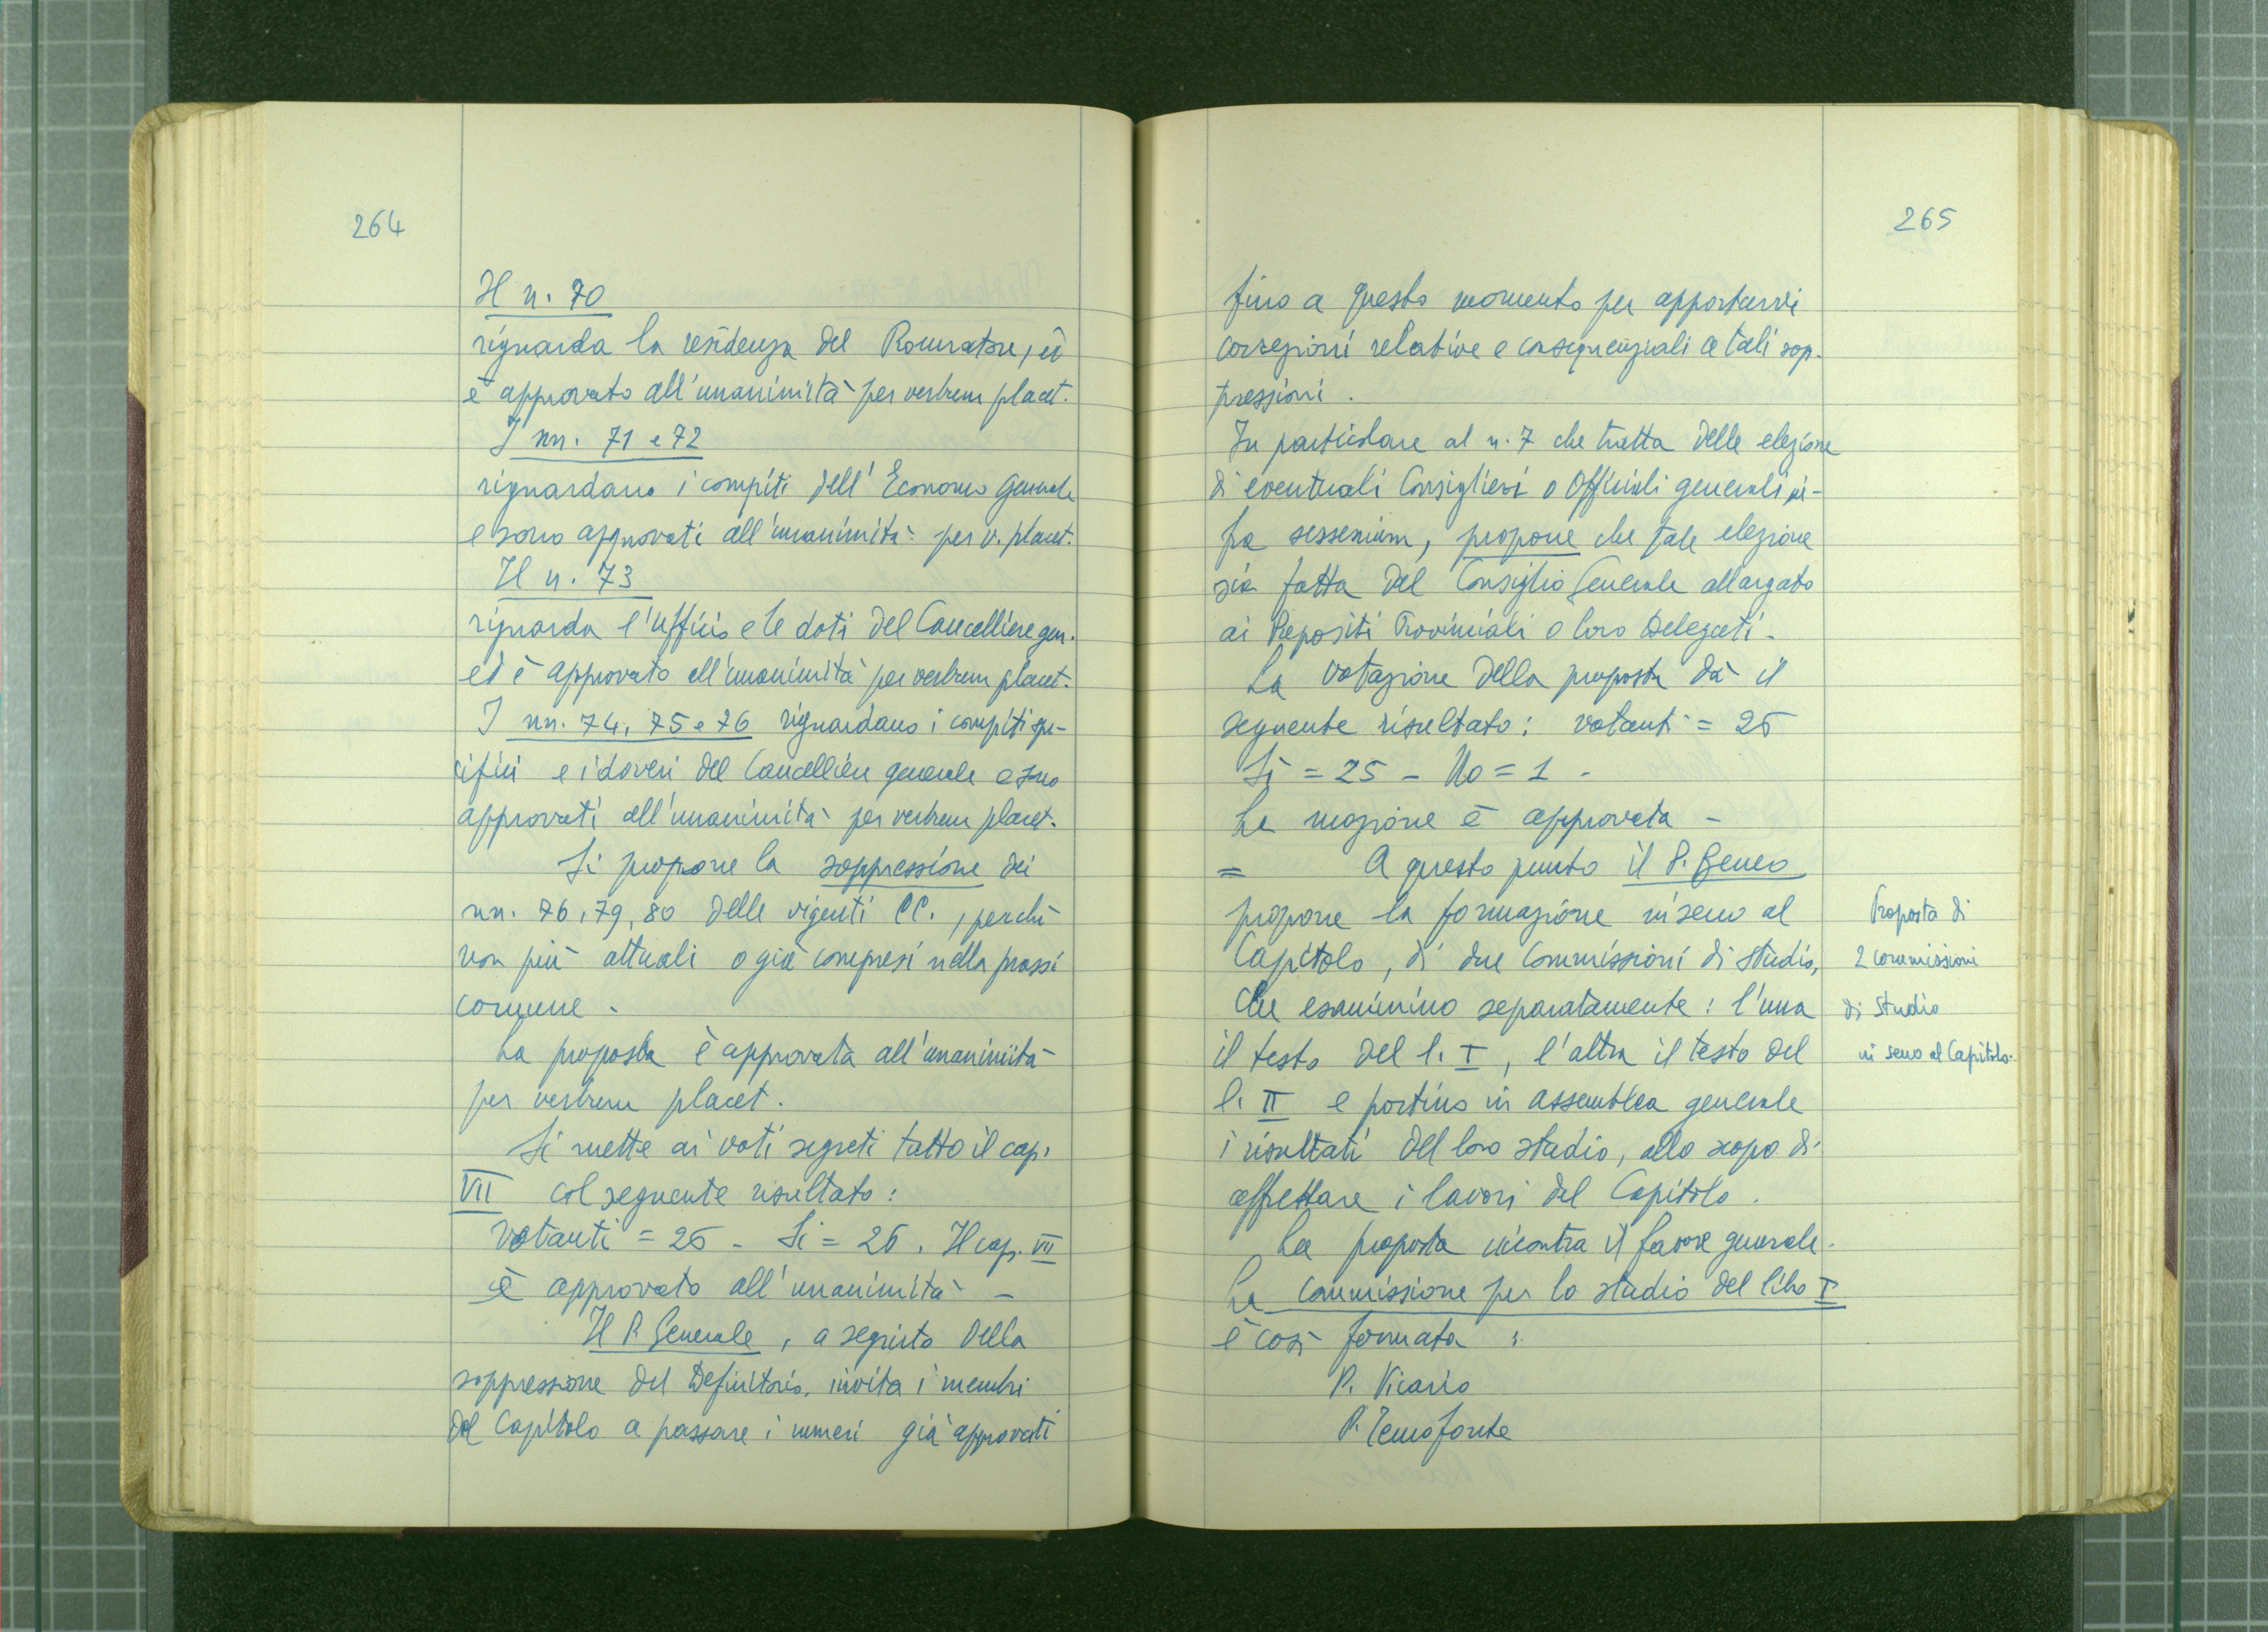 264
Il n. 70
riguarda la residenza del Procuratore, ed
è approvato all'unanimità per verbum placet.
I nn. 71 e 72
riguardano i compiti dell'Economo Generale
e sono approvati all'unanimità per v. placet.
Il n. 73
riguarda l'ufficio e le doti del Cancelliere gen.
ed è approvato all'unanimità per verbum placet.
I nn. 74, 75 e 76 riguardano i compiti spe-
cifici e i doveri del Cancelliere generale e sono
approvati all'unanimità per verbum placet.
Si propone la soppressione dei
nn. 76, 79, 80 delle vigenti CC., perché
non più attuali o già compresi nella prassi
comune.
La proposta è approvata all'unanimità
per verbum placet.
Si mette ai voti segreti tutto il cap.
VII col seguente risultato:
votanti = 26 - Si = 26. Il cap. VII
è approvato all'unanimità -
Il P. Generale, a seguito della
soppressione del Definitorio, invita i membri
del Capitolo a passare i numeri già approvati
265
fino a questo momento per apportarvi
correzioni relative e consequenziali a tali sop-
pressioni.
In particolare al n. 7 che tratta delle elezione
di eventuali Consiglieri o Officiali generali in-
fra sessenium, propone che tale elezione
sia fatta dal Consiglio Generale allargato
ai Prepositi Provinciali o loro Delegati.
La votazione della proposta dà il
seguente risultato: votanti = 26
Si = 25 - No = 1 -
La mozione è approvata -
= A questo punto il P.
propone la formazione in seno al
Capitolo, di due Commissioni di studio,
che esaminino separatamente: l'una
il testo del l. I, l'altra il testo del
l. II e portino in assemblea generale
i risultati del loro studio, allo scopo di
affrettare i lavori del Capitolo.
La proposta incontra il favore generale.
La commissione per lo studio del libro I
è così formata:
P. Vicario
P. Temofonte
Proposta di
2 commissioni
di studio
in seno al Capitolo.